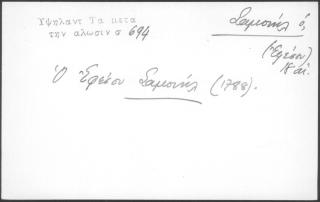 Υψηλαντ Τα μετα
την αλωσιν σ 694
Σαμουήλ ὁ,
(Ἐφέσου)
Ὁ Ἐφέσου Σαμουήλ (1788).